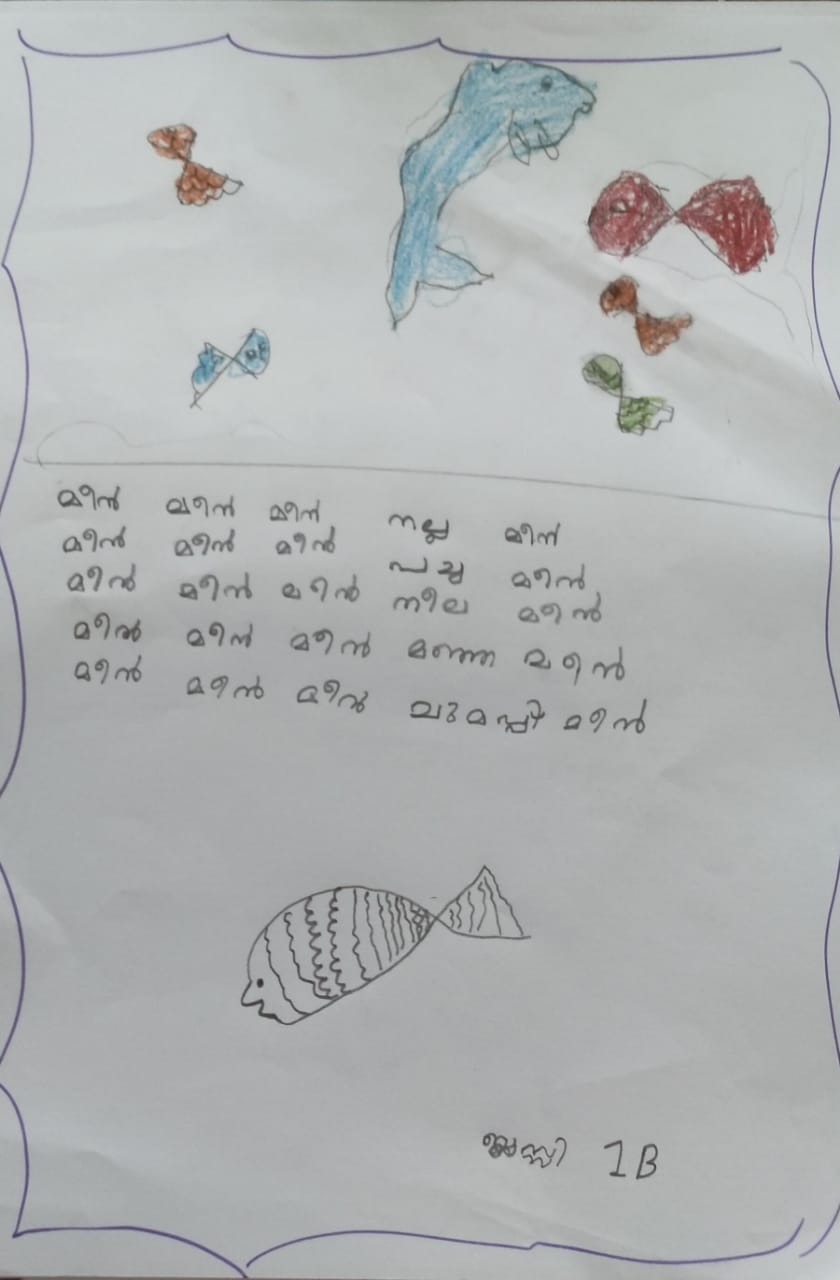 മീൻ മീൻ മീൻ നല്ല മീൻ
മീൻ മീൻ മീൻ പച്ച മീൻ
മീൻ മീൻ മീൻ നീല മീൻ
മീൻ മീൻ മീൻ മഞ്ഞ മീൻ
മീൻ മീൻ മീൻ മീൻ
1B